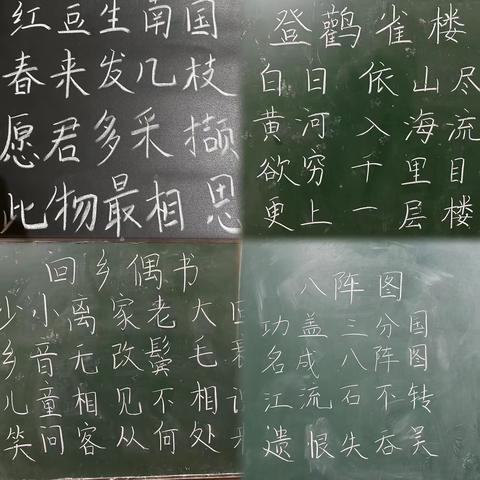 红豆生南国
春来发几枝
愿君多采撷
此物最相思
登鹳雀楼
白日依山尽
黄河入海流
欲穷千里目
更上一层楼
回乡偶书
少小离家老大回
乡音无改鬓毛衰
儿童相见不相识
笑问客从何处来
八阵图
功盖三分国
名成八阵图
江流石不转
遗恨失吞吴